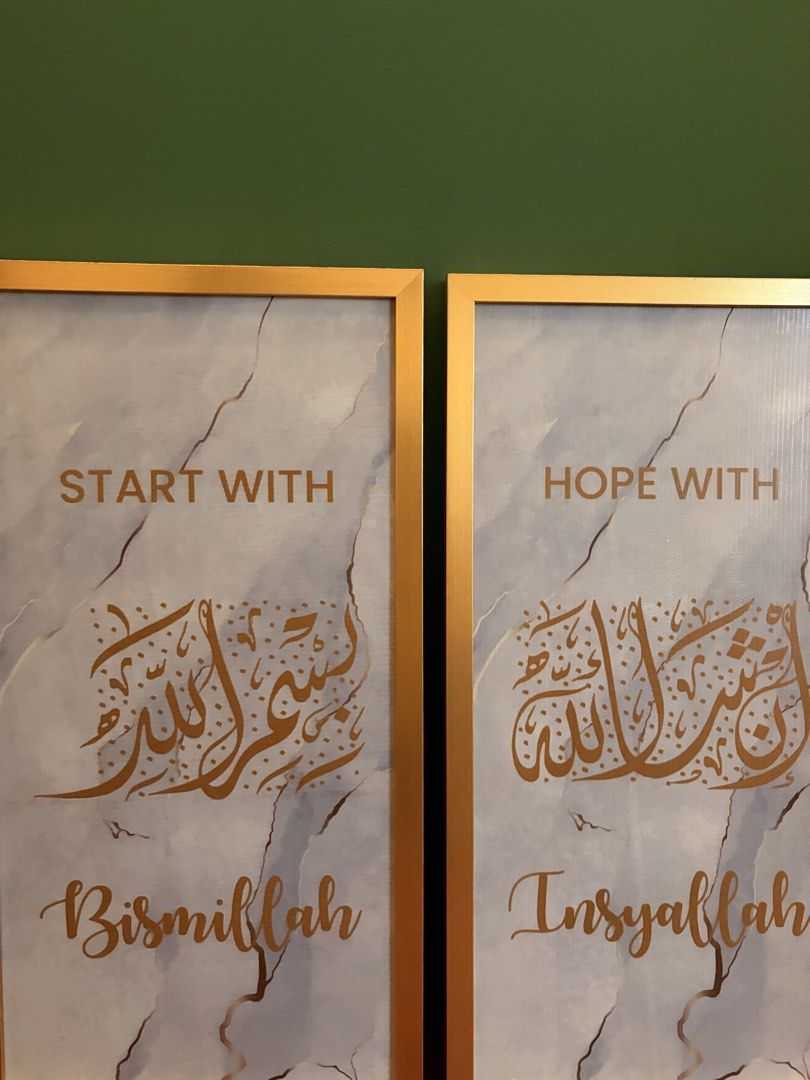 START WITH
بسم الله
Bismillah
HOPE WITH
إن شاء الله
Insyallah